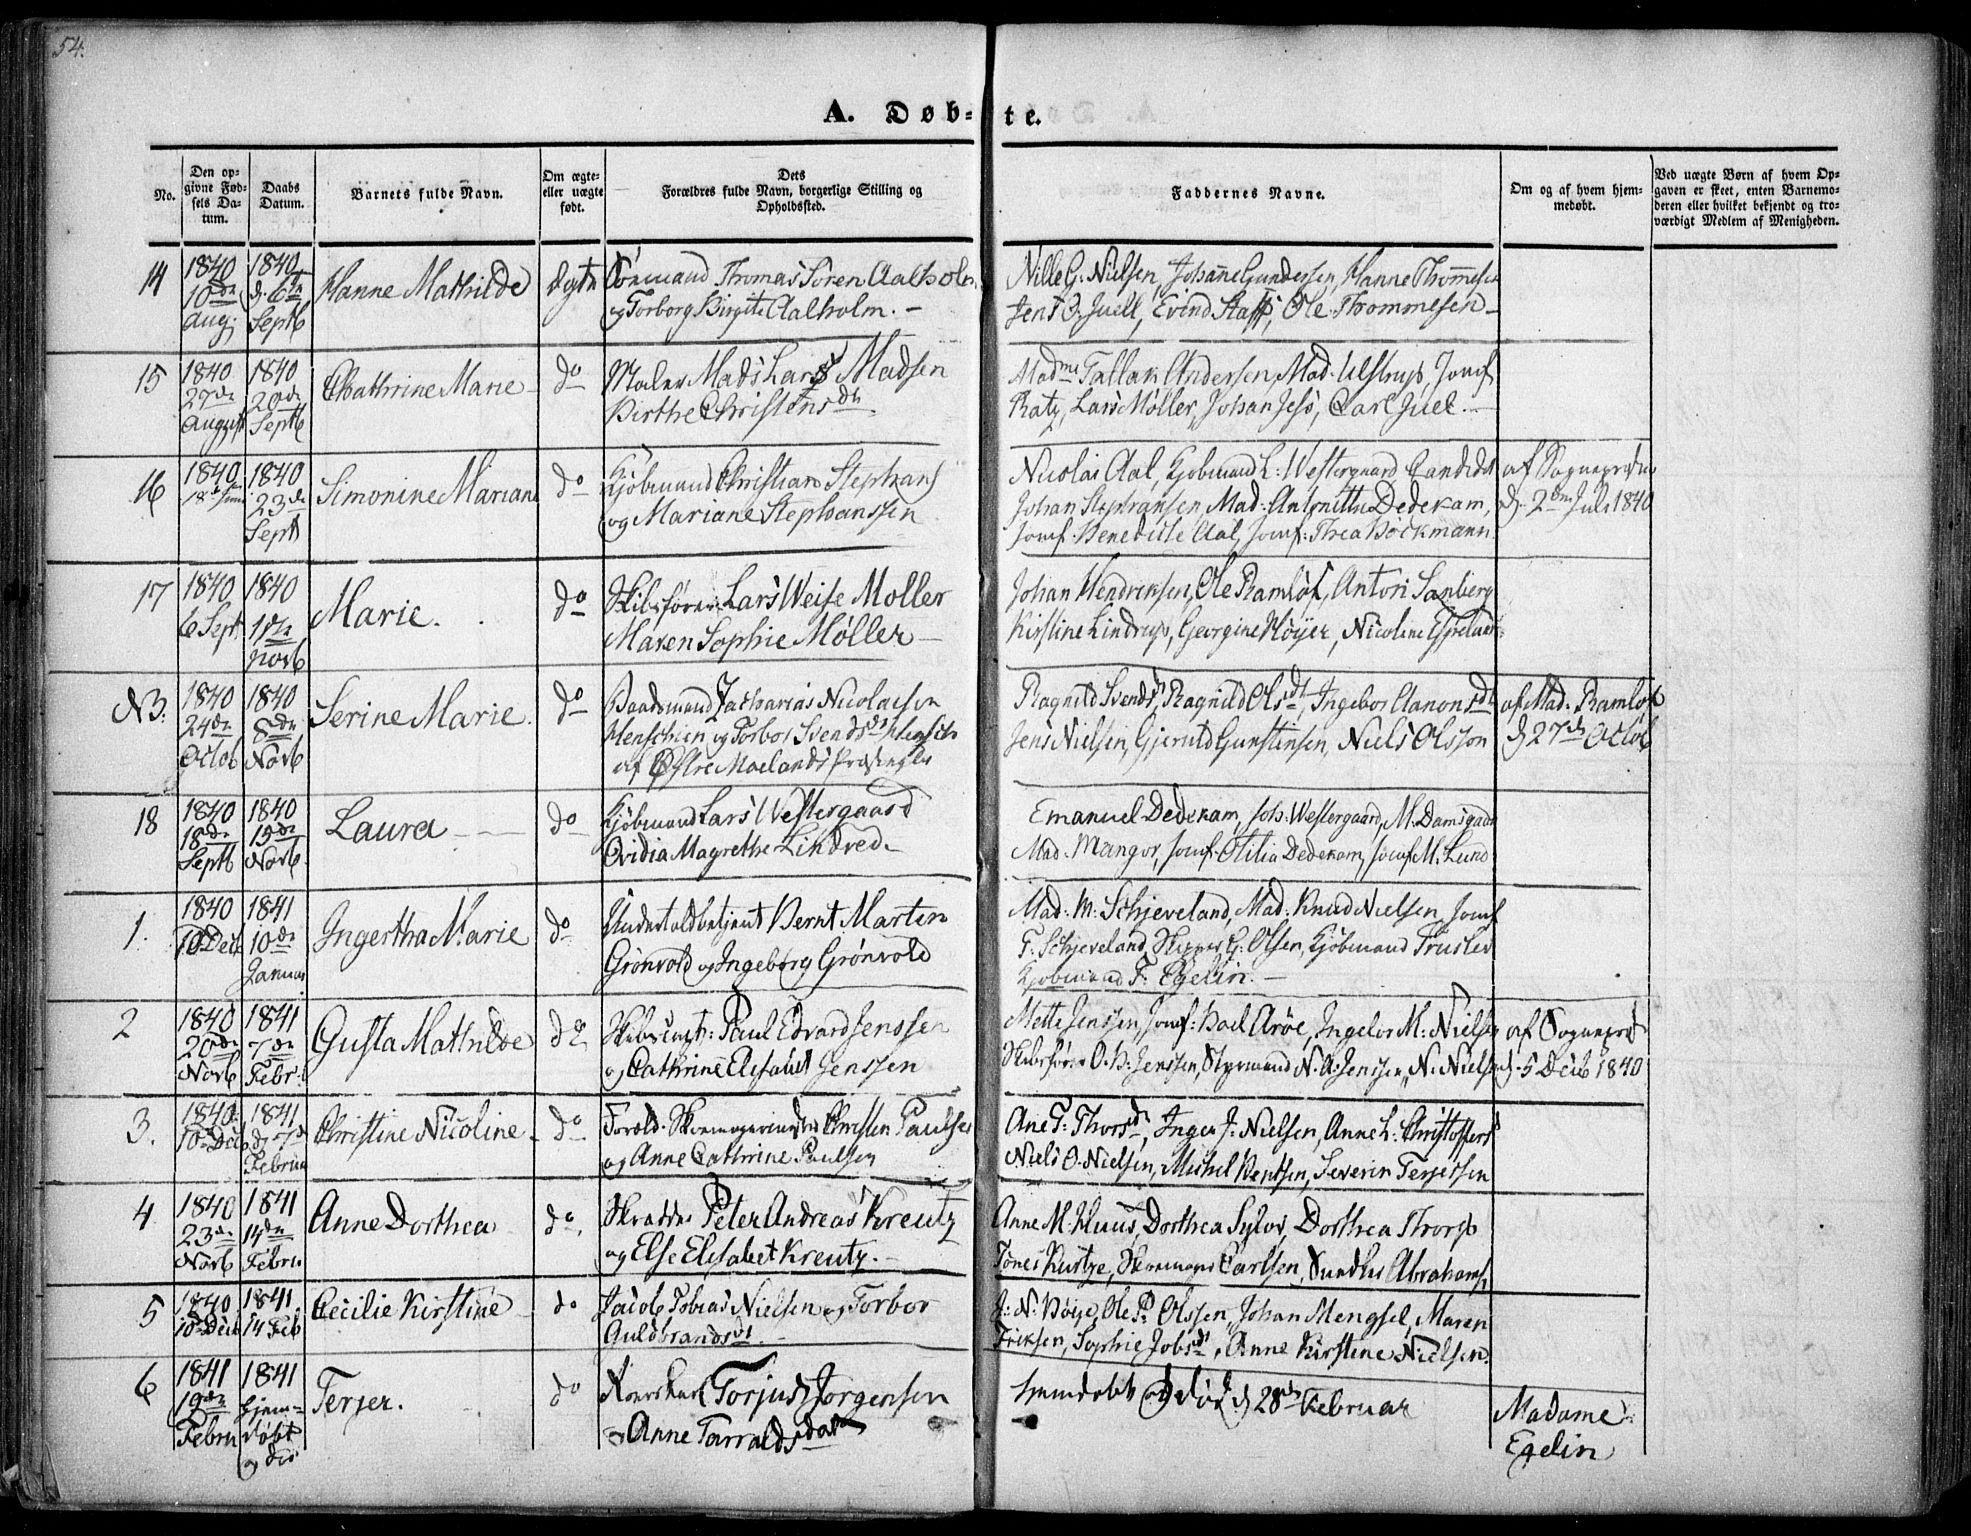 54.
A. Døb- te.
No.
Den op-
givne Fød-
sels Da-
tum.
Daabs
Datum.
Barnets fulde Navn.
Om ægte-
eller uægte
født.
Dets
Forældres fulde Navn, borgerlige Stilling og
Opholdssted.
Faddernes Navne.
Om og af hvem hjem-
medøbt.
Ved uægte Børn af hvem Op-
gaven er skeet, enten Barnemo-
deren eller hvilket bekjendt og tro-
værdigt Medlem af Menigheden.
14
1840
10de
Aug:
1840
d. 6te
Septb
Hanne Mathilde
Ægte
Thomas Søren Aalholm
og Torborg Birgite Aalholm. -
Nille G. Nielsen, Johanne Gundersen, Hanne Thommesen
Jens O. Juell, Evind Staff, Ole Thommesen -
15
1840
27de
August
1840
20de
Septb
Chathrine Marie
do
Maler Mads Lars Madsen
Birthe Christensdt
Madme Tallak Andersen, Mad. Ulstrup, Jomf
Ratz, Lars Møller, Johan Jess, Carl Juel. -
16
1840
18de Juni
1840
23de
Sept
Simonine Mariane
do
Kjøbmand Christian Stephans
og Mariane Stephanssen
Nicolai Aal, Kjøbmand L: Westergaard, Candidat
Johan Stephansen, Mad. Antonitte Dedekam,
Jomf. Benedicte Aal, Jomf: Thea Bøckmann
af Sognepræsten
d. 2den Juli 1840
17
1840
6 Sept.
1840
1ste
Novb
Marie.
do
Skibsfører Lars Weise Møller
Maren Sophie Møller -
Johan Hendriksen, Ole Ramløf, Anton Sanberg
Kirstine Lindrup, Georgine Høyer, Nicoline
NB.
1840
24de
Octob
1840
8de
Novb
Serine Marie.
do
Baadsmand Zacharias Nicolaisen
Henschien og Torbor Svendsdt
af Østre Moelands Præstegjeld
Ragnild Svendsdt, Ragnild Olsdt, Ingebor Aanonsdt
Jens Nielsen, Gjeruld Gunstensen, Niels Olsson
af Mad. Ramløf
d. 27de Octob
18
1840
18de
Septb
1840
15de
Novb
Laura
do
Kjøbmand Lars Westergaard
Ovidia Magrethe Lindved. -
Emanuel Dedekam, Joh: Westergaard, M. Damsgaard
Mad. Mangor, Jomf. Otilia Dedekam, Jomf M. Lund
1.
1840
10 Decb
1841
10de
Januar
Ingertha Marie
do
Undertoldbetjent Bernt Marten
Grønvold og Ingeborg Grønvold
Mad: M: Schjeveland, Mad: Knud Nielsen, Jomf
T. Schjeveland, Skipper G: Olsen, Kjøbmand Truslev
Kjøbmand F: Egelin. -
2
1840
20de
Novb
1841
7de
Febr:
Gusta Mathilde
do
Skibscapt: Paul Edvard Jenssen
og Cathrine Elisabet Jenssen
Mette Jenssen, Jomf: Boel Arøe, Ingebor M: Nielsen
Skibsfører O. H: Jenssen, Styrmand N. A. Jenssen, N. Nielsen
af Sognepræst
d. 5 Decb 1840
3.
1840
10 Decb
1841
d. 7de
Februar
Christine Nicoline
do
Foræld. Skomagermester Christen Paulsen
og Anne Cathrine Paulsen
Ane T: Thorsdt, Inger J: Nielsen, Anne L: Christoffers
Niels O. Nielsen, Michel Bentsen, Severin Terjessen
4.
1840
23de
Novb
1841
14de
Febru
Anne Dorthea
do.
Skrædder Peter Andreas Kreutz
og Else Elisabet Kreutz. -
Anne M. Huus, Dorthea Sylov, Dorthea Thorp
Tønes Skomager Carlsen, Abrahams,
5
1840
10 Decb
1841
14 Feb
Cecilie Kirstine
do
Jacob Tobias Nielsen og Torbor
Guldbrandsdt. -
J: N: Høye, Ole P. Olssen, Johan Mengsel, Maren
Eriksen, Sophie Jobsdt, Anne Kirstine Nielsen.
6
1841
19de
Febru
1841
hjem-
døbt
og død
Terjer.
do
Torjus Jørgensen
og Anne Tarraldsdatr
hjemdøbt og død d 28de Februar
Madame
Egelin